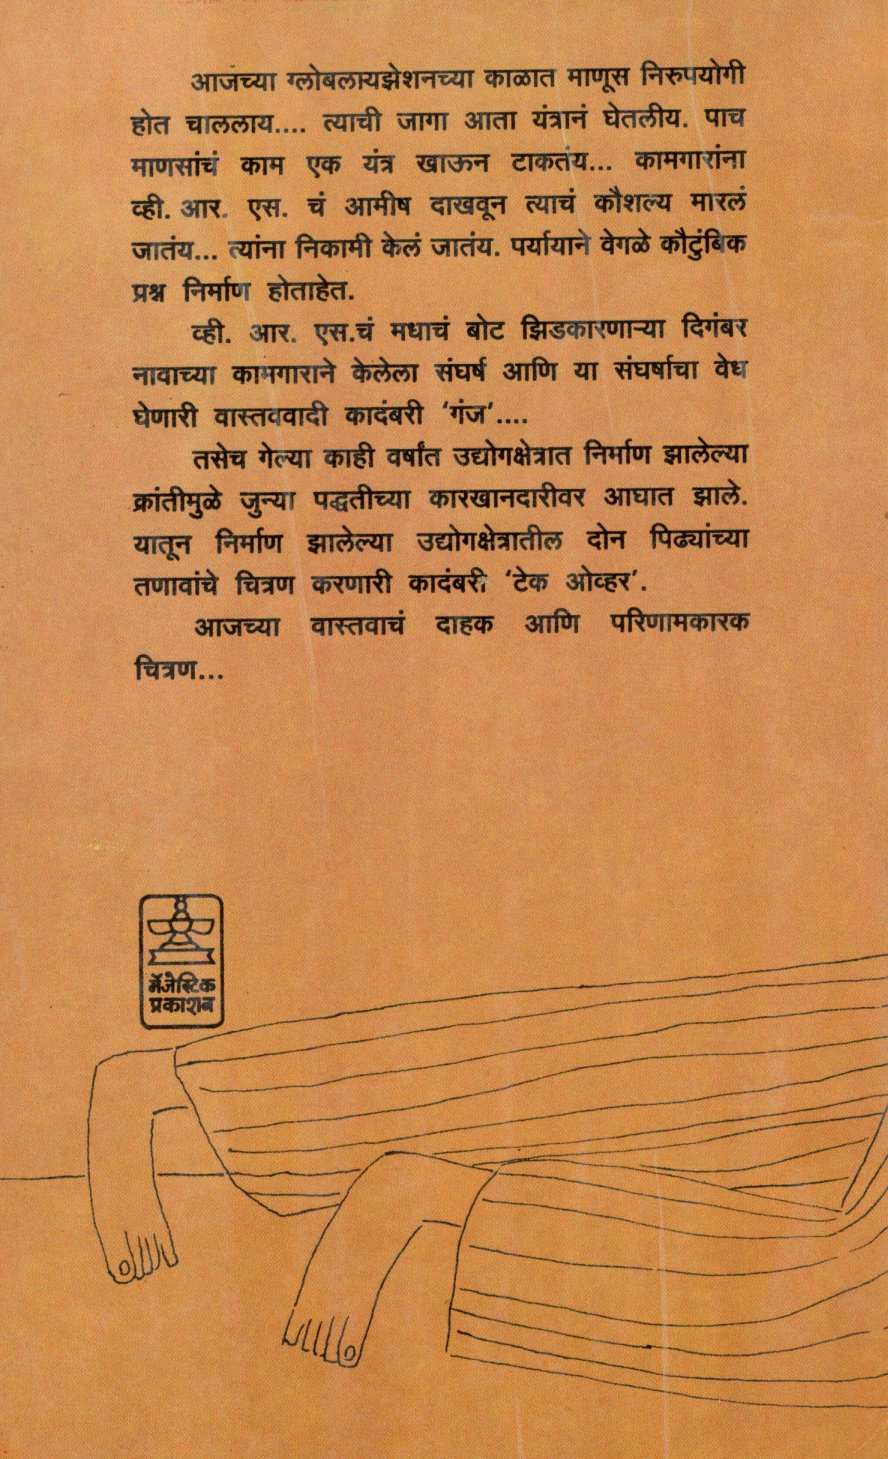 आजच्या ग्लोबलायझेशनच्या काळात माणूस निरुपयोगी
होत चाललाय.... त्याची जागा आता यंत्रानं घेतलीय. पाच
माणसांचं काम एक यंत्र खाऊन टाकतंय... कामगारांना
व्ही. आर. एस. चं आमीष दाखवून त्याचं कौशल्य मारलं
जातंय... त्यांना निकामी केलं जातंय. पर्यायाने वेगळे कौटुंबिक
प्रश्न निर्माण होताहेत.
व्ही. आर. एस.चं मधाचं बोट झिडकारणाऱ्या दिगंबर
नावाच्या कामगाराने केलेला संघर्ष आणि या संघर्षाचा वेध
घेणारी वास्तववादी कादंबरी ‘गंज’....
तसेच गेल्या काही वर्षांत उद्योगक्षेत्रात निर्माण झालेल्या
क्रांतीमुळे जुन्या पद्धतीच्या कारखानदारीवर आघात झाले.
यातून निर्माण झालेल्या उद्योगक्षेत्रातील दोन पिढ्यांच्या
तणावांचे चित्रण करणारी कादंबरी ‘टेक ओव्हर’.
आजच्या वास्तवाचं दाहक आणि परिणामकारक
चित्रण...
मॅजेस्टिक
प्रकाशन